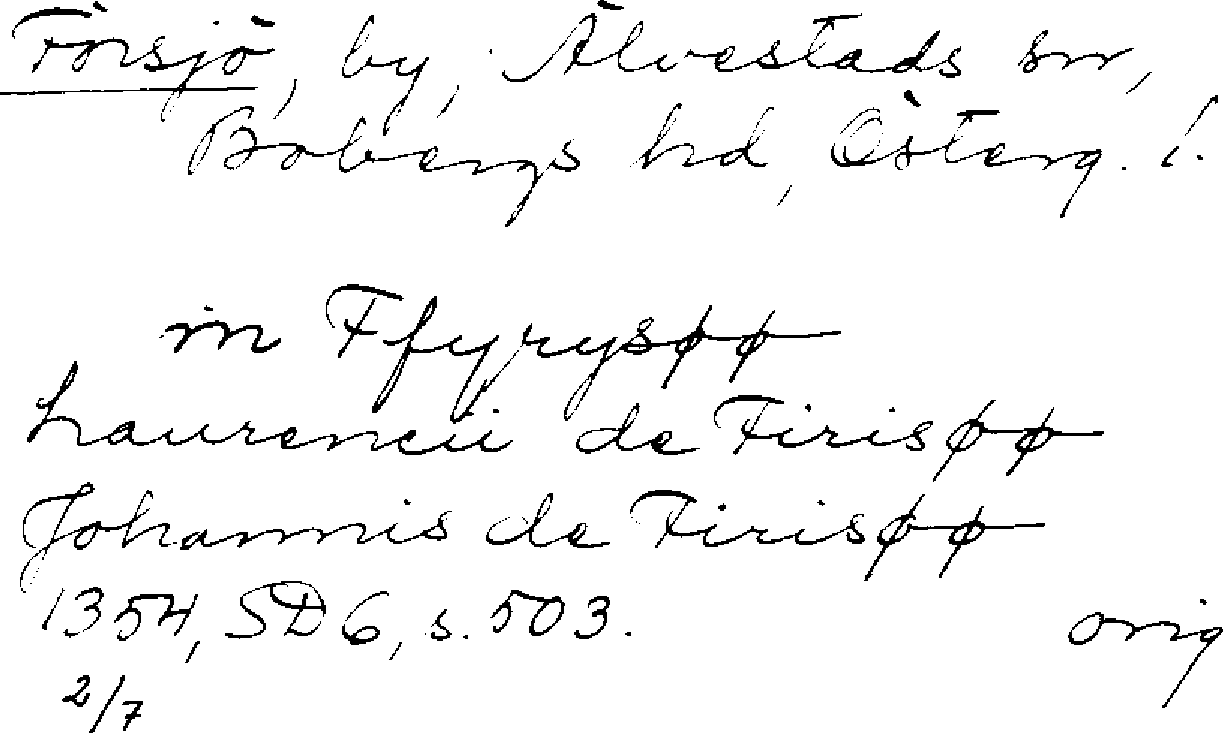 Försjö, by, Älvestads sn,
Bobergs hd, Österg. l.
in Ffyrysøø
Laurencii de Firisøø
Johannis de Firisøø
1354, SD 6, s. 503. orig
2/7